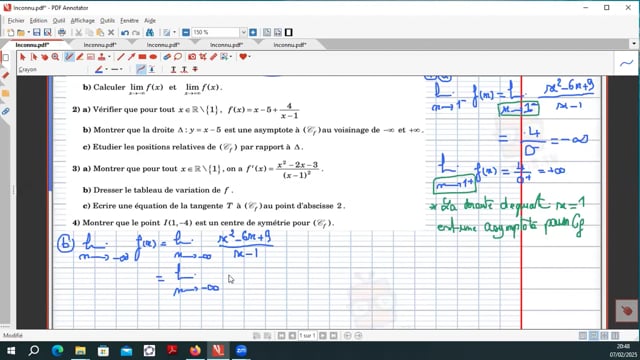 Inconnu.pdf* - PDF Annotator
Fichier Edition Outil Affichage Fenêtre Aide
150 %
Inconnu.pdf* Inconnu.pdf* Inconnu.pdf* Inconnu.pdf* Inconnu.pdf*
Crayon
b) Calculer lim f(x) et lim f(x).
x→-∞ x→+∞
2) a) Vérifier que pour tout x∈ℝ\{1}, f(x)=x-5+4/(x-1)
b) Montrer que la droite Δ: y=x-5 est une asymptote à (Cf) au voisinage de -∞ et +∞.
c) Etudier les positions relatives de (Cf) par rapport à Δ.
3) a) Montrer que pour tout x∈ℝ\{1}, on a f'(x)=(x²-2x-3)/(x-1)².
b) Dresser le tableau de variation de f.
c) Ecrire une équation de la tangente T à (Cf) au point d'abscisse 2.
4) Montrer que le point I(1,-4) est un centre de symétrie pour (Cf).
b) lim f(x) = lim (x²-6x+9)/(x-1)
x→-∞ x→-∞
= lim
x→-∞
lim f(x) = lim (x²-6x+9)/(x-1)
x→1⁻ x→1⁻
= 4/0⁻ = -∞
lim f(x) = 4/0⁺ = +∞
x→1⁺
* La droite d'equat x=1
est une asymptote pour Cf
Modifié
1 sur 1
20:48
07/02/2025